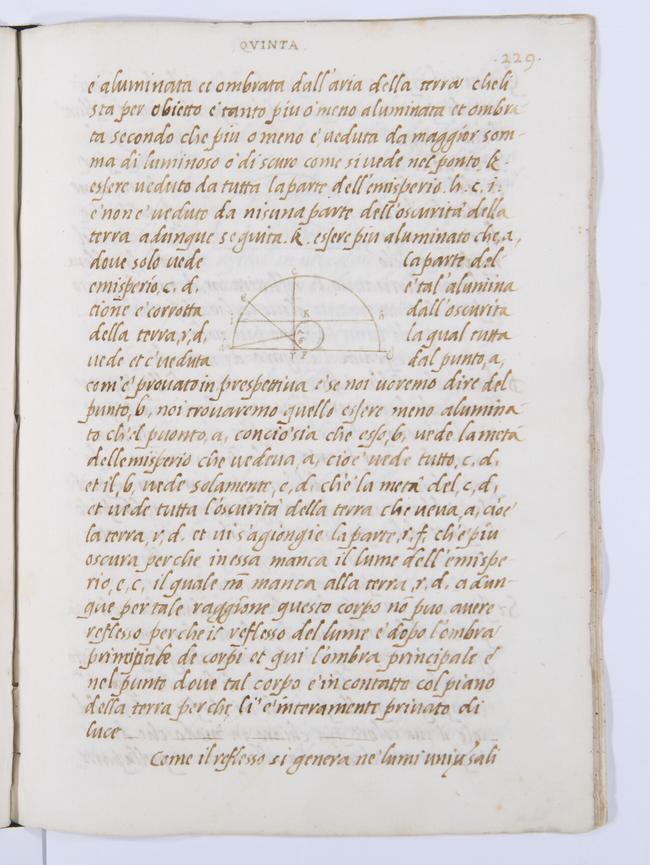 QVINTA.
.229.
é aluminata et ombrata dall'aria della terra cheli
sta per obietto e tanto piu o meno aluminata et ombra
ta secondo che piu o meno é veduta da maggior som-
ma di luminoso o di scuro come si vede nel ponto, k.
essere veduto da tutta la parte dell'emisperio. h. c. i.
e non e veduto da nisuna parte dell'oscurita della
terra adunque seguita. k. essere piu aluminato che, a,
dove solo vede la parte del
emisperio, c. d. e tal'alumina
tione e corrotta dall'oscurita
della terra, r, d, la qual tutta
vede et e veduta dal punto, a,
com'e provato in prespettiva e se noi voremo dire del
punto, b, noi trovaremo quello essere meno alumina
to ch'el puonto, a, conciosia che esso, b, vede la metá
dell emisperio che vedeva, a, cioe vede tutto, c, d,
et il, b, vede solamente, e, d, ch'e la metá del, c, d,
et vede tutta l'oscuritá della terra che veva, a, cioé
la terra, r, d. et vi s'agiongie la parte, r, f, ch'e piu
oscura perche in essa manca il lume dell'emispe-
rio, e, c, il quale nõ manca alla terra, r, d. adun-
que per tale raggione questo corpo nõ puo avere
reflesso perche il reflesso del lume e dopo l'ombra
principale de corpi et qui l'ombra principale é
nel punto dove tal corpo e in contatto col piano
della terra perche li e interamente privato di
luce
Come il reflesso si genera ne lumi universali